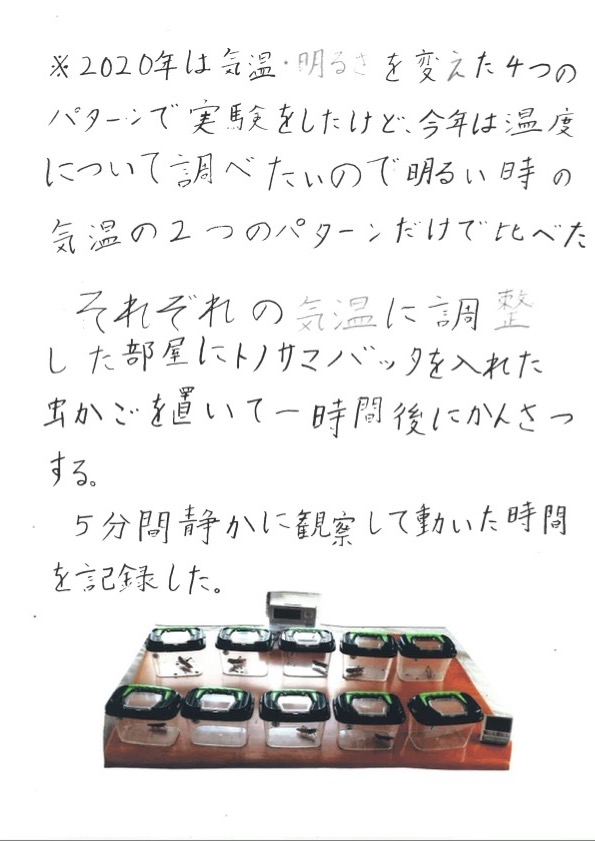 ※2020年は気温・明るさを変えた4つの
パターンで実験をしたけど、今年は温度
について調べたいので明るい時の
気温の2つのパターンだけで比べた
それぞれの気温に調整
した部屋にトノサマバッタを入れた
虫かごを置いて一時間後にかんさつ
する。
5分間静かに観察して動いた時間
を記録した。